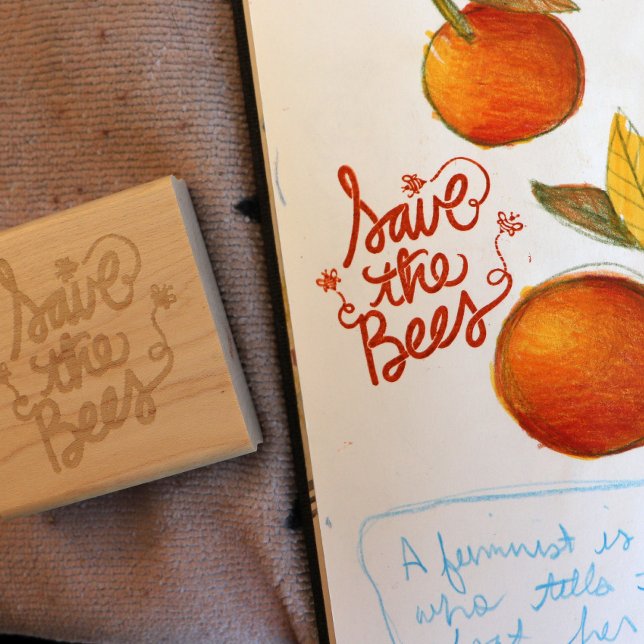 Save
the
Bees
Save
the
Bees
A feminist is
who tells
her